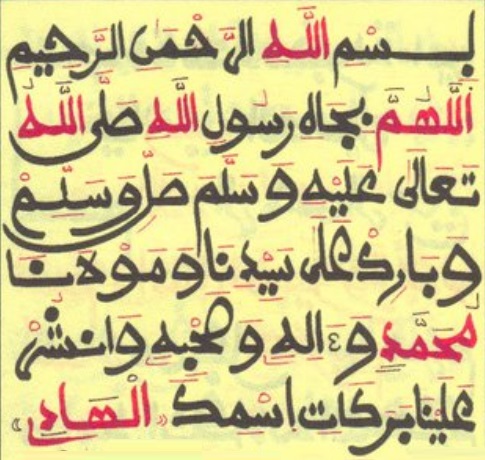 بِسْمِ اللَّهِ الرَّحْمَنِ الرَّحِيمِ
اللَّهُمَّ بِجَاهِ رَسُولِ اللَّهِ صَلَّى اللَّهُ
تَعَالَى عَلَيْهِ وَسَلَّمَ صَلِّ وَسَلِّمْ
وَبَارِكْ عَلَى سَيِّدِنَا وَمَوْلَانَا
مُحَمَّدٍ وَءَالِهِ وَصَحْبِهِ وَانْشُرْ
عَلَيْنَا بَرَكَاتِ اسْمِكَ «الْهَادِي»